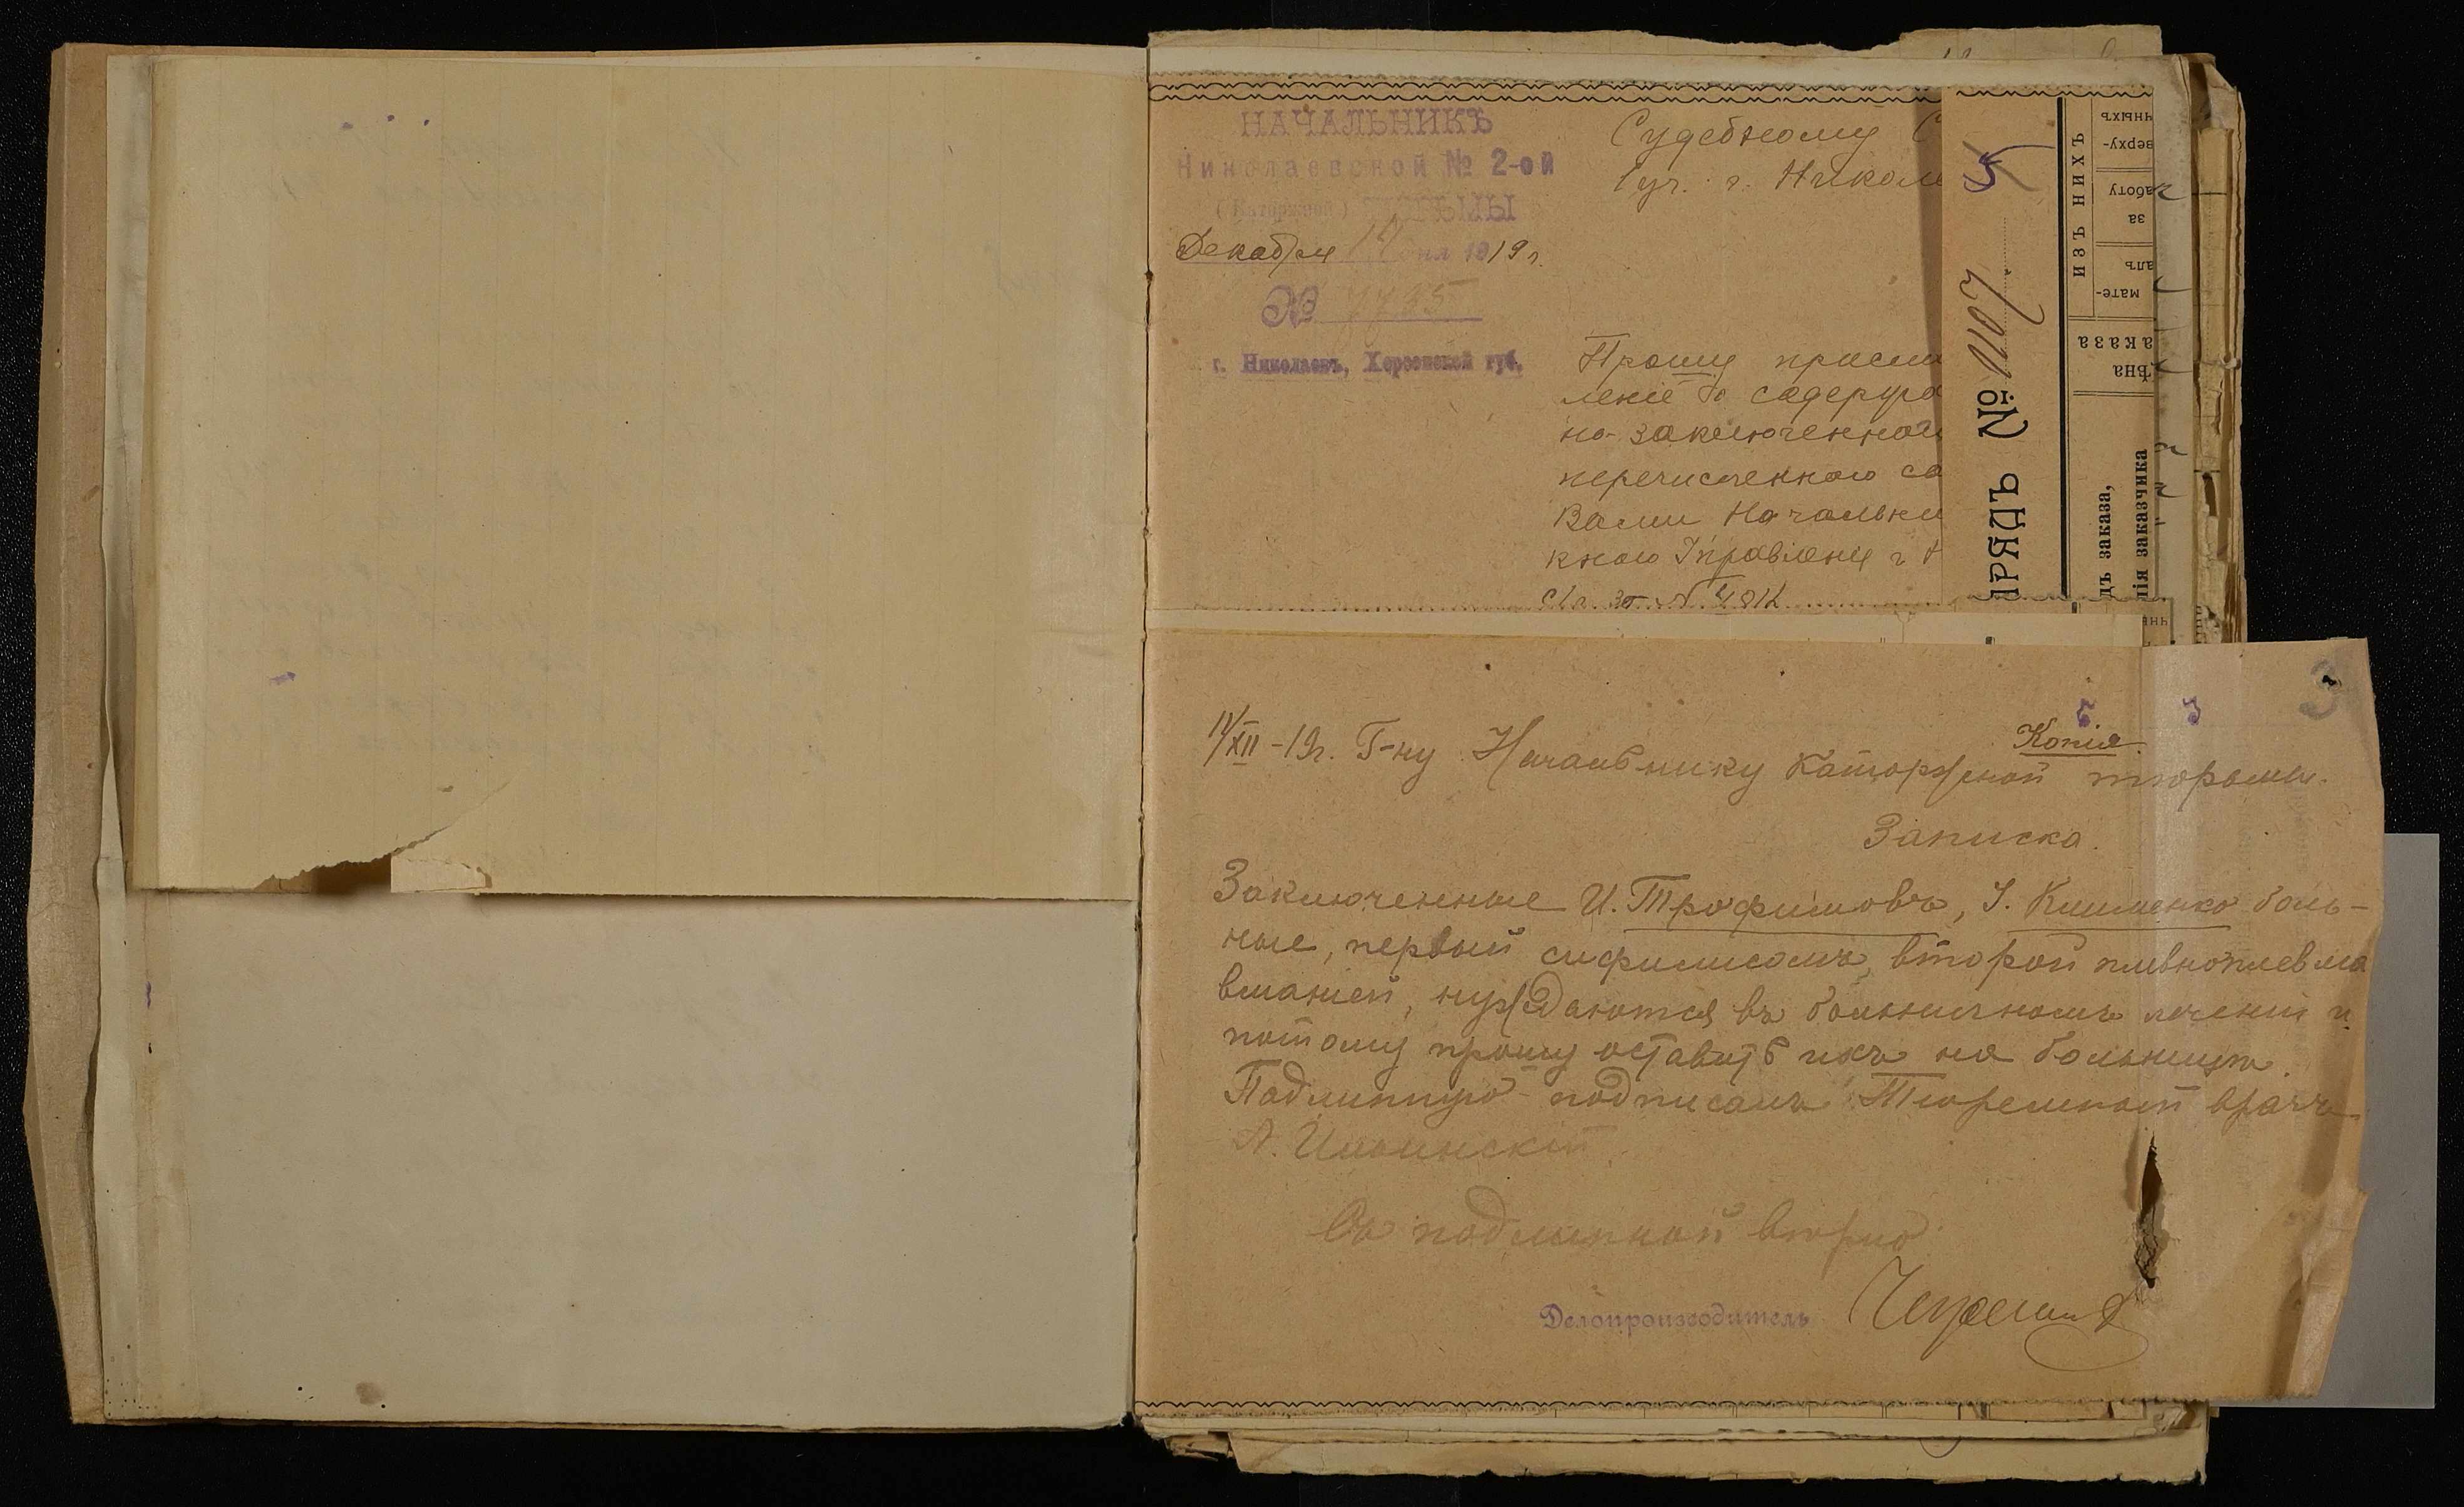 НАЧАЛЬНИКЪ
Николаевской № 2-ой
(Каторжной) ТЮРЬМЫ
Декабря 14 дня 1919 г.
№ 7735
г. Николаевъ, Херсонской губ.
Судебному С
1 уч. г. Никола
Прошу присл
леніе о содержа
но заключенном
перечисленного со
Вами Начальни
кного Управления г
5
РЯДЪ №
ИЗЪ НИХЪ
чныхъ
верху-
аботу
за
алъ
мате-
аказа
ѣна
дъ заказа,
нія заказчика
3
14/XII - 19г. Г-ну Начальнику Каторжной тюрьмы.
Копія.
Записка.
Заключенные И. Трофимовъ, І. Клименко боль-
ные, первый сифилисомъ, второй
нуждаются въ больничномъ леченіи и
потому прошу оставить ихъ на больницѣ.
Подлинную подписалъ: Тюремный врачъ
А. Ильинскій
Съ подлинной вѣрно
Делопроизводитель